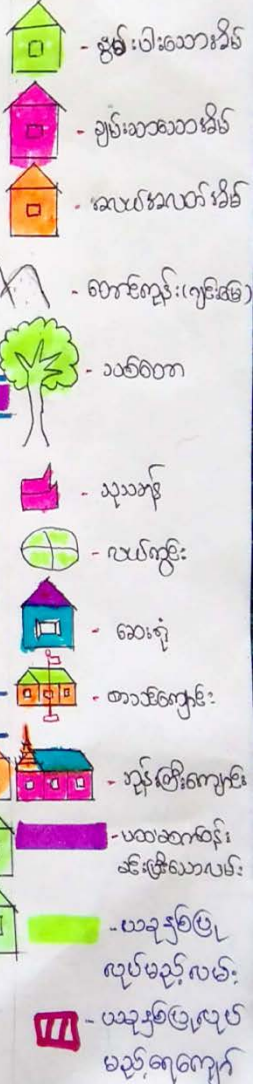 - နွမ်းပါးသောအိမ်
- ချမ်းသာသောအိမ်
- အလယ်အလတ်အိမ်
- တောင်ကုန်း(ချင်းမြေ)
- သစ်တော
- သုသာန်
- လယ်ကွင်း
- ဆေးရုံ
- စာသင်ကျောင်း
- ဘုန်းကြီးကျောင်း
- ပထမတန်း
ခင်းပြီးသောလမ်း
- ယခုနှစ်ပြု
လုပ်မည့်လမ်း
- ယခုနှစ်ပြုလုပ်
မည့်ရေကျော်